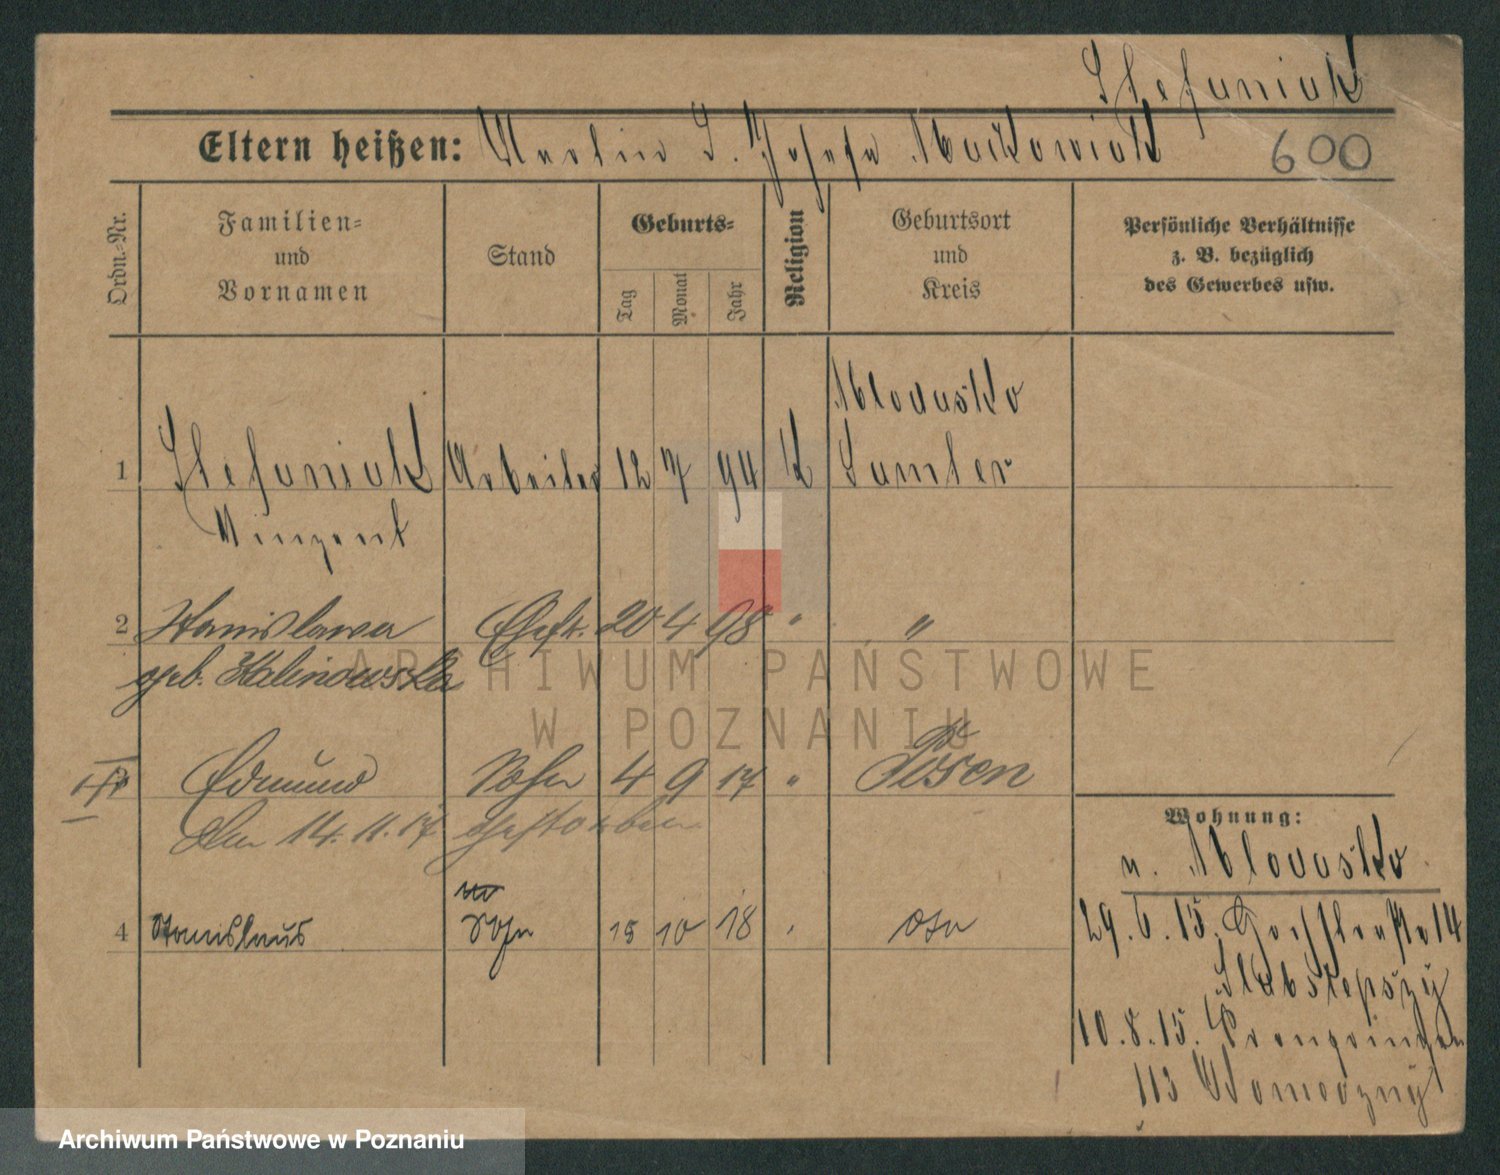 Stefaniak
Eltern heißen: Martin u. Josefa Maćkowiak 600
Ordn.-Nr. Familien- und Vornamen Stand Geburts- Tag Monat Jahr Religion Geburtsort und Kreis Persönliche Verhältnisse z. B. bezüglich des Gewerbes usw.
Mlodasko
1 Stefaniak Arbeiter 12 7 94 K Samter
Vinzent
2 Stanislawa Ehefr. 20 4 98 " "
geb. Kalinowska
3 Edmund Sohn 4 9 17 " Posen
Den 14. 11. 17 gestorben
Wohnung:
v. Mlodasko
4 Stanislaus Sohn 15 10 18
29.6.15. 14
10.8.15. Kronprinzen
113
ARCHIWUM PAŃSTWOWE
W POZNANIU
Archiwum Państwowe w Poznaniu